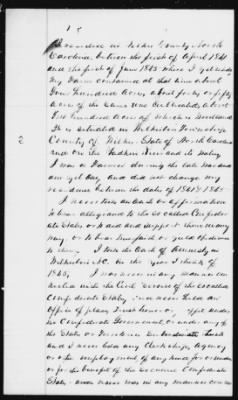 I resided in Wilkes County North
Carolina between the first of April 1861
and the first of June 1865 where I yet reside
My Farm contained at that time about
four hundred acres about forty or fifty
acres of the same was cultivated, about
two hundred acres of which is woodland
It is situated in Wilkesboro Township
County of Wilkes State of North Carolina
and on the Yadkin
I was a Farmer during the late war and
am yet one, and did not change my
residence between the dates of 1861 & 1865
I never took an oath or affirmation
to bear allegiance to the so called Confeder
ate States or to aid and support them in any
way, or to bear true faith or yield obedience
to them. I took the oath of Amnesty in
Wilkesboro N.C. in the year I think of
1865, I was never in any manner con
nected with the Civil Service of the so called
Confederate States, nor never held an
office of place trust honor or profit under
the Confederate Government, or under any of
the States or Territories
and I never held any Clerkship, Agency
or other employment of any kind for or under
or for the benefit of the so called Confederate
States. and never was in any manner con